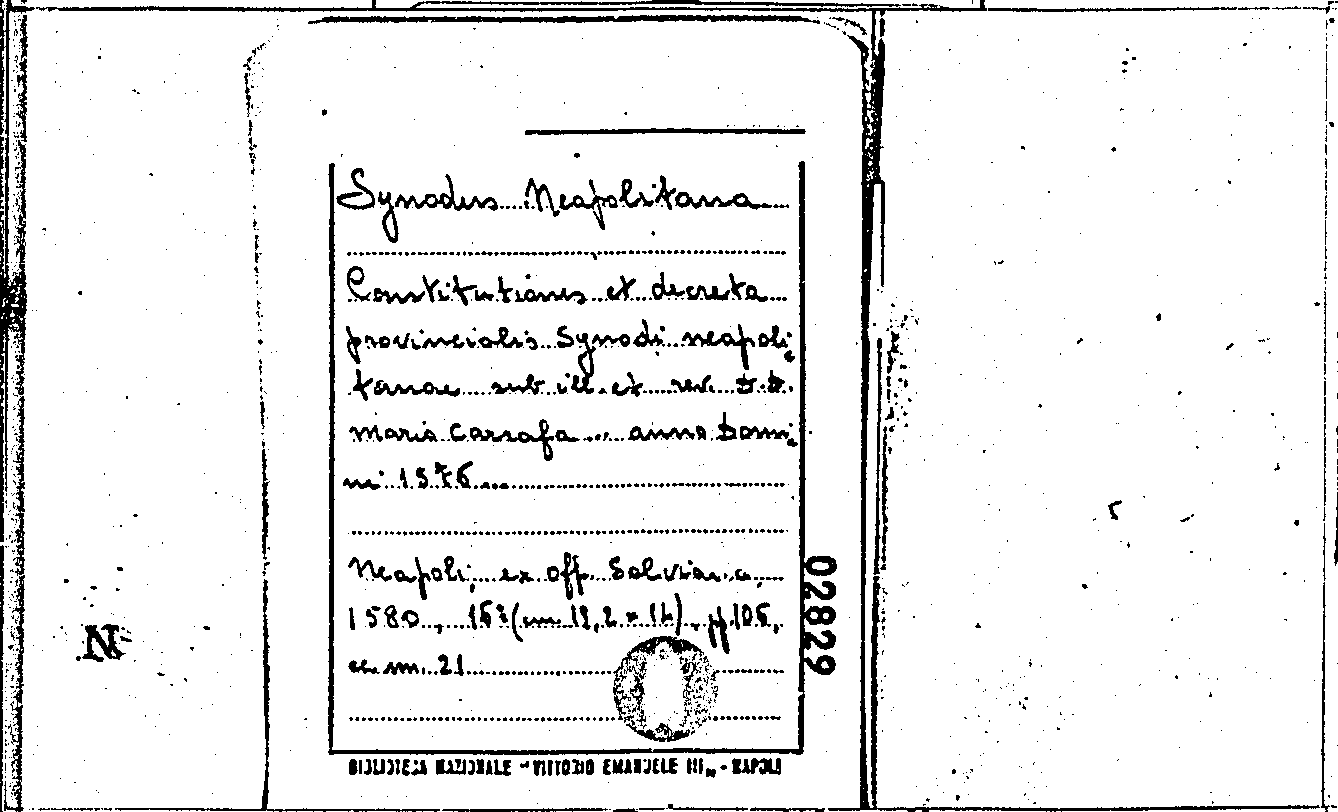 Synodus Neapolitana
Constitutiones et decreta
provincialis Synodi neapoli-
tanae sub ill. et rev. D. D.
Mario Carrafa ... anno Domi-
ni 1576...
Neapoli, ex off. Salviana,
1580, 16° (cm 19,2 × 14), pp. 106,
cc. nn. 21
02829
BIBLIOTECA NAZIONALE "VITTORIO EMANUELE III" - NAPOLI
N